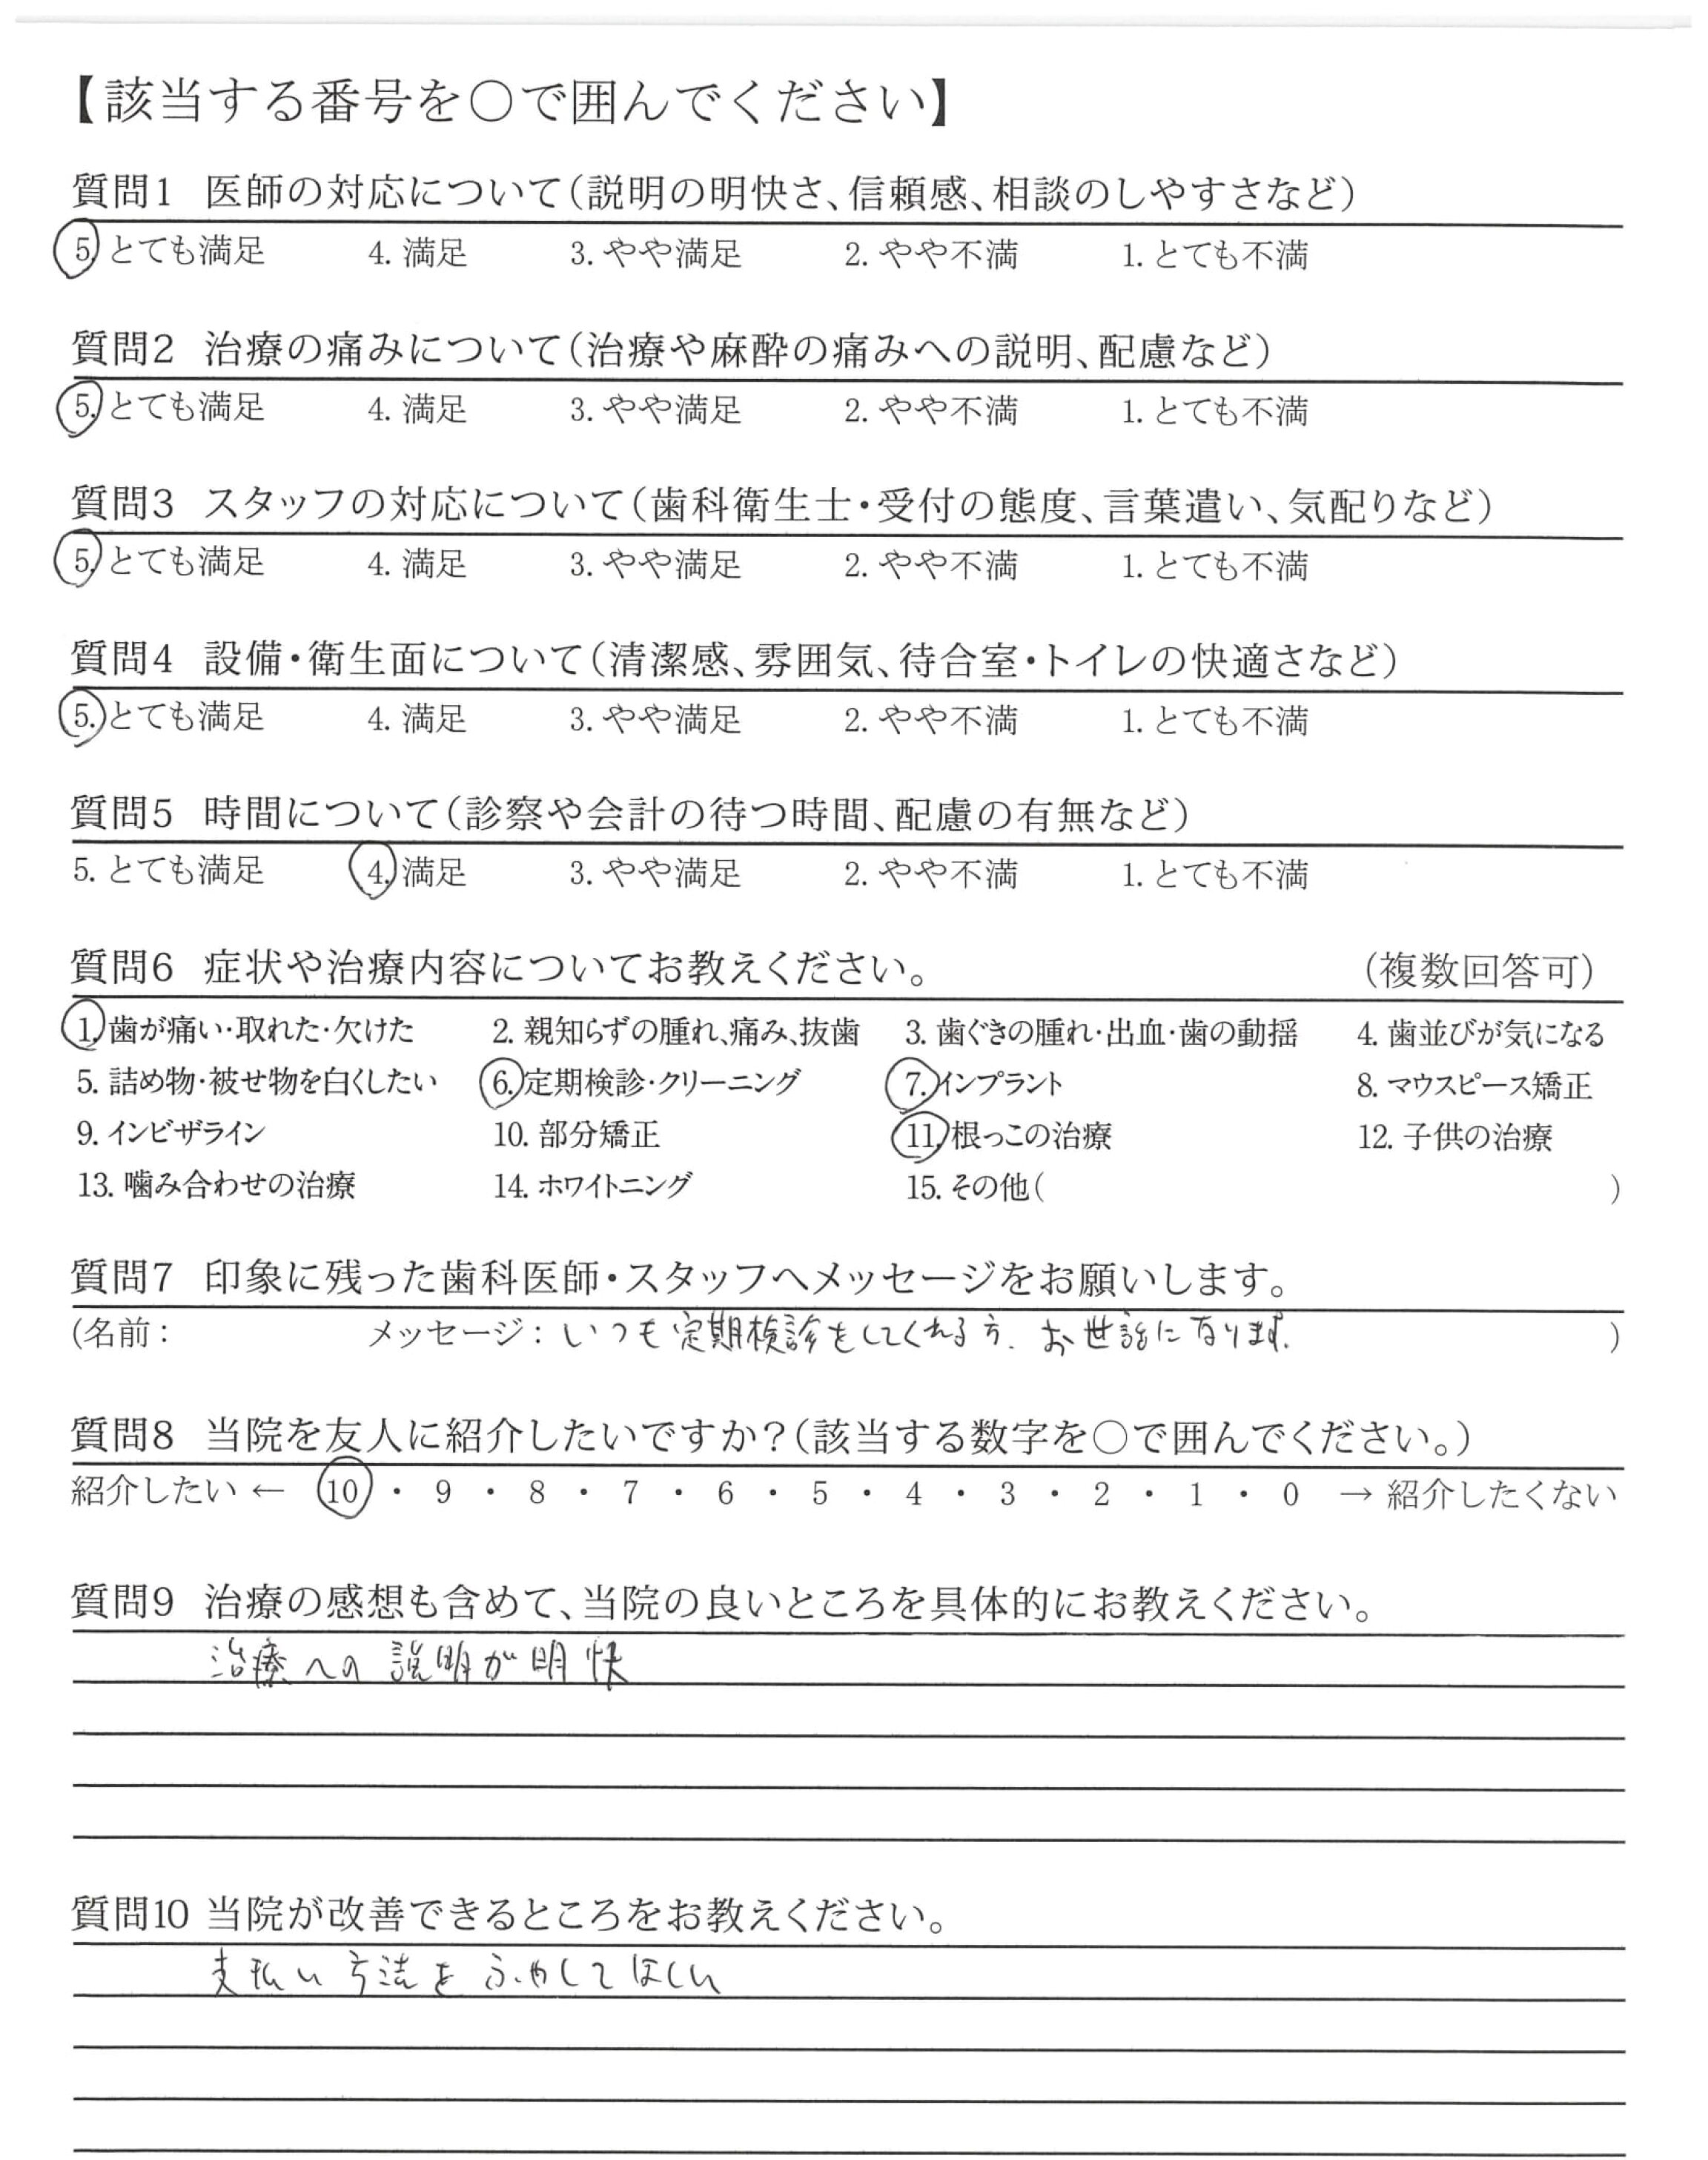 【該当する番号を○で囲んでください】
質問1 医師の対応について(説明の明快さ、信頼感、相談のしやすさなど)
5. とても満足 4. 満足 3. やや満足 2. やや不満 1. とても不満
質問2 治療の痛みについて(治療や麻酔の痛みへの説明、配慮など)
5. とても満足 4. 満足 3. やや満足 2. やや不満 1. とても不満
質問3 スタッフの対応について(歯科衛生士・受付の態度、言葉遣い、気配りなど)
5. とても満足 4. 満足 3. やや満足 2. やや不満 1. とても不満
質問4 設備・衛生面について(清潔感、雰囲気、待合室・トイレの快適さなど)
5. とても満足 4. 満足 3. やや満足 2. やや不満 1. とても不満
質問5 時間について(診察や会計の待つ時間、配慮の有無など)
5. とても満足 4. 満足 3. やや満足 2. やや不満 1. とても不満
質問6 症状や治療内容についてお教えください。 (複数回答可)
1. 歯が痛い・取れた・欠けた 2. 親知らずの腫れ、痛み、抜歯 3. 歯ぐきの腫れ・出血・歯の動揺 4. 歯並びが気になる
5. 詰め物・被せ物を白くしたい 6. 定期検診・クリーニング 7. インプラント 8. マウスピース矯正
9. インビザライン 10. 部分矯正 11. 根っこの治療 12. 子供の治療
13. 噛み合わせの治療 14. ホワイトニング 15. その他( )
質問7 印象に残った歯科医師・スタッフへメッセージをお願いします。
(名前: メッセージ: いつも定期検診をしてくれる方. お世話になります. )
質問8 当院を友人に紹介したいですか?(該当する数字を○で囲んでください。)
紹介したい ← 10 ・ 9 ・ 8 ・ 7 ・ 6 ・ 5 ・ 4 ・ 3 ・ 2 ・ 1 ・ 0 → 紹介したくない
質問9 治療の感想も含めて、当院の良いところを具体的にお教えください。
治療への説明が明快
質問10 当院が改善できるところをお教えください。
支払い方法をふやしてほしい